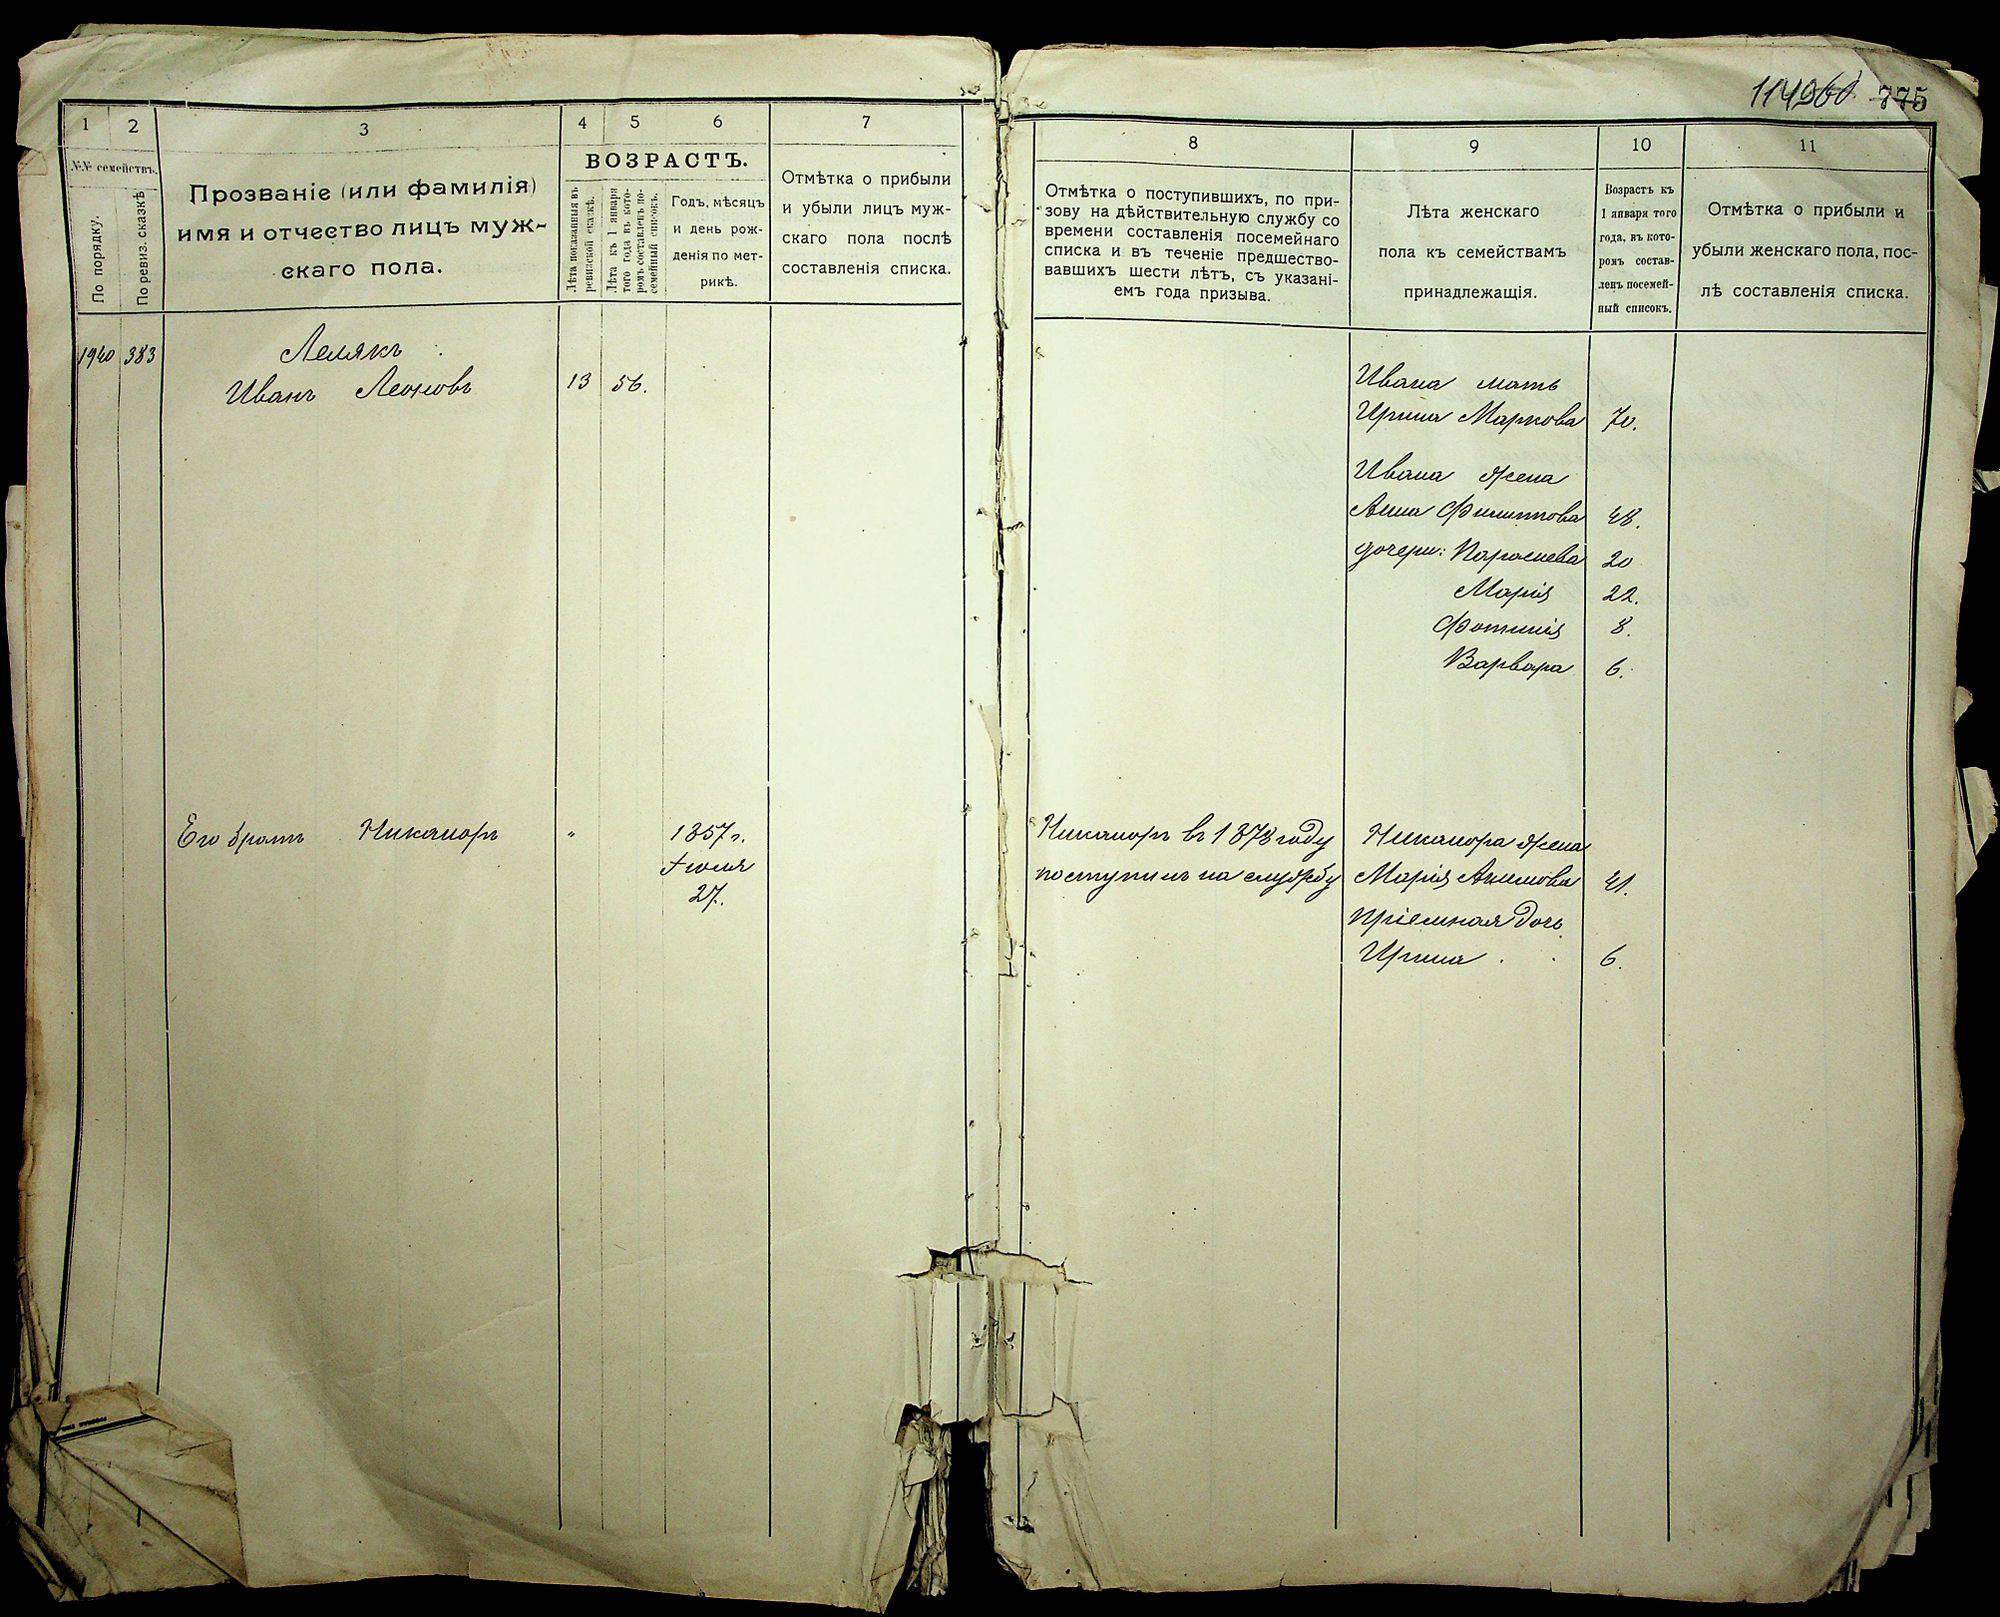 775
1
2
3
4
5
6
7
№№ семействъ.
По порядку.
По ревиз. сказкѣ
Прозваніе (или фамилія)
имя и отчество лицъ муж-
скаго пола.
ВОЗРАСТЪ.
Лѣта показанныя въ
ревизской сказкѣ.
Лѣта къ 1 января
того года въ кото-
ромъ составленъ по-
семейный списокъ.
Годъ, мѣсяцъ
и день рож-
денія по мет-
рикѣ.
Отмѣтка о прибыли
и убыли лицъ муж-
скаго пола послѣ
составленія списка.
8
9
10
11
Отмѣтка о поступившихъ, по при-
зову на дѣйствительную службу со
времени составленія посемейнаго
списка и въ теченіе предшество-
вавшихъ шести лѣтъ, съ указані-
емъ года призыва.
Лѣта женскаго
пола къ семействамъ
принадлежащія.
Возрастъ къ
1 января того
года, въ кото-
ромъ состав-
ленъ посемей-
ный списокъ.
Отмѣтка о прибыли и
убыли женскаго пола, пос-
лѣ составленія списка.
1940 383 Лелякъ
Иванъ Леоновъ 13 56.
Ивана мать
Ирина Маркова 70.
Ивана жена
Анна Филиппова 48.
дочери: Параскева 20
Марія 22.
Фотинія 8.
Варвара 6.
Его братъ Никаноръ " 1857 г.
Іюля
27.
Никаноръ въ 1878 году
поступилъ на службу
Никанора жена
Марія Акимова 41.
Пріемная дочь
Ирина 6.